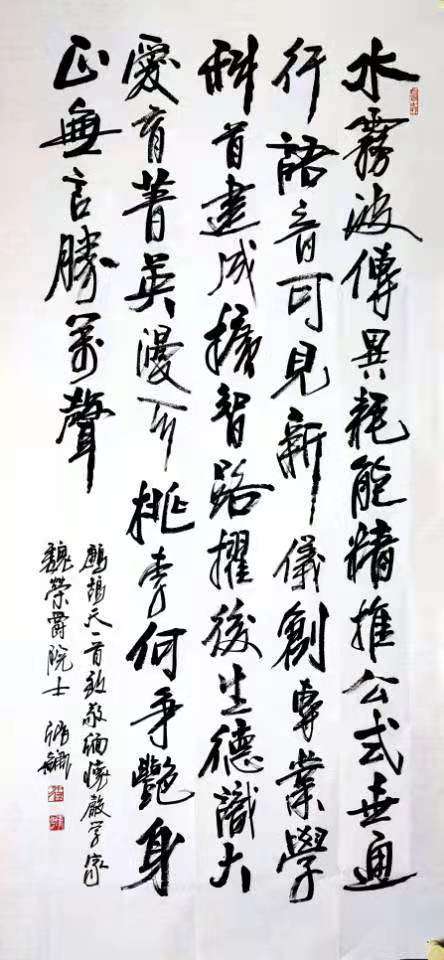 水霧波傳異耗能精推公式世通
行語音可見新儀創專業學
科首建成擴智路擢後生德識大
愛育菁英漫桃李何爭艷身
正無言勝萬聲
鷓鴣天一首致敬緬懷聲学家
魏榮爵院士